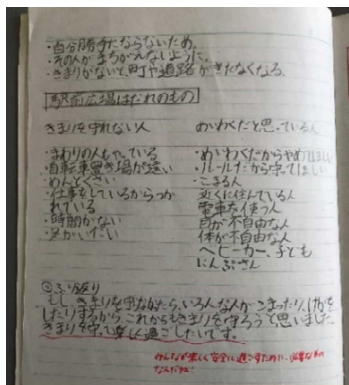 ・自分勝手にならないため。
・その人がまちがえないように。
・きまりがないと、町や道路がきたなくなる。
駅前広場はだれのもの
きまりを守れない人
・まわりの人もやっている
・自転車置き場が遠い
めんどくさい
・仕事をしているからつか
れている
・時間がない
・足がいたい
めいわくだと思っている人
・めいわくだからやめてほしい
・ルールだから守ってほしい
・こまる人
近くに住んでいる人
電車を使う人
目が不自由な人
体が不自由な人
ベビーカー、子ども
にんぷさん
ふり返り
もし、きまりを守らなかったら、いろんな人がこまったり、けがを
したりするから、これからもきまりを守ろうと思いました。
きまりを守って楽しく過ごしたいです。
みんなが楽しく安全に過ごすために、必要なもの
なんだね!